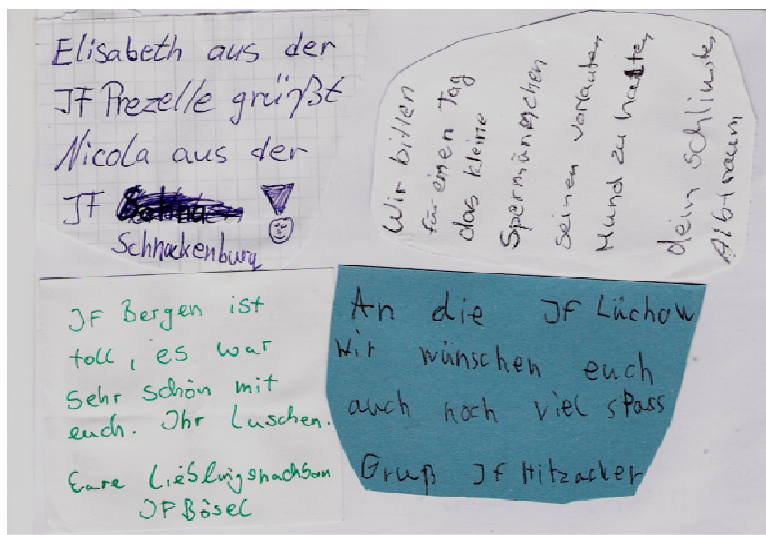 Elisabeth aus der
JF Prezelle grüßt
Nicola aus der
JF
Schnackenburg
Wir bitten
für einen Tag
das kleine
Spermänchen
seinen vorlauten
Mund zu halten,
dein schlimster
Albtraum
JF Bergen ist
toll, es war
sehr schön mit
euch. Ihr Luschen.
Eure Lieblingsnachban
JF Bösel
An die JF Lüchow
Wir wünschen euch
auch noch viel spass
Gruß JF Hitzacker